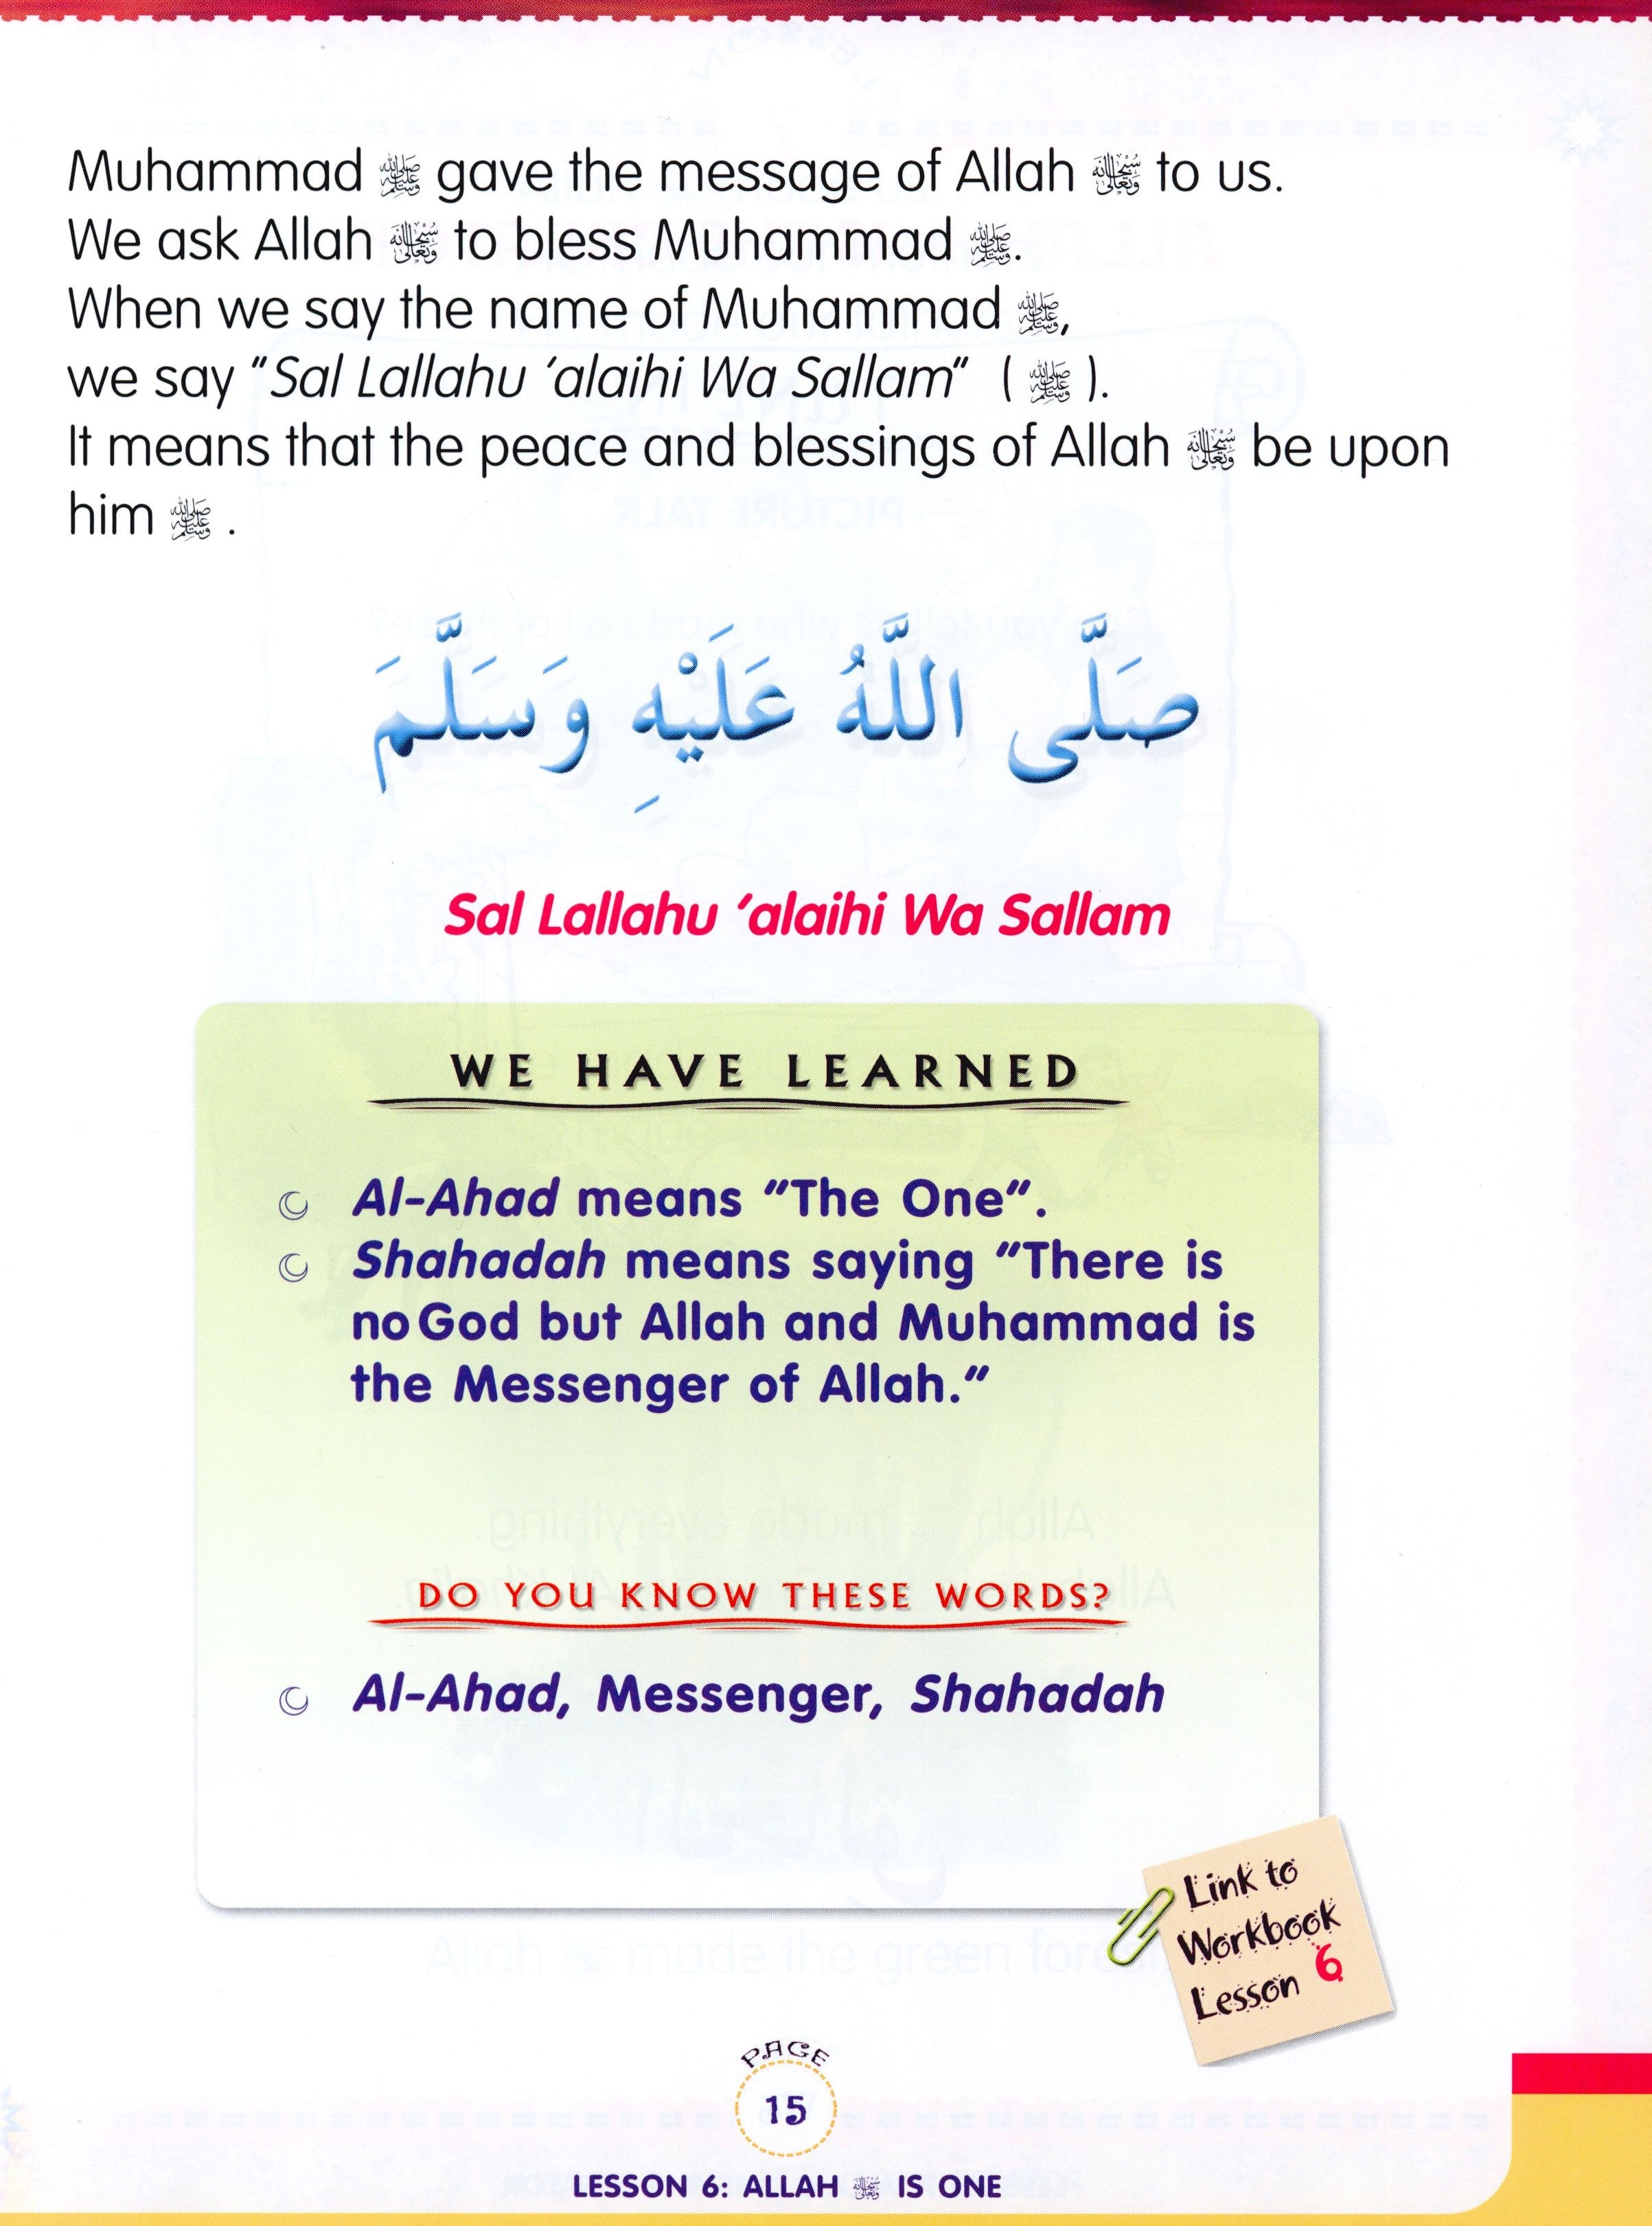 Muhammad ﷺ gave the message of Allah سبحانه وتعالى to us.
We ask Allah سبحانه وتعالى to bless Muhammad ﷺ.
When we say the name of Muhammad ﷺ,
we say "Sal Lallahu 'alaihi Wa Sallam" ( ﷺ ).
It means that the peace and blessings of Allah سبحانه وتعالى be upon
him ﷺ .
صَلَّى اللَّهُ عَلَيْهِ وَسَلَّمَ
Sal Lallahu 'alaihi Wa Sallam
WE HAVE LEARNED
Al-Ahad means "The One".
Shahadah means saying "There is
no God but Allah and Muhammad is
the Messenger of Allah."
DO YOU KNOW THESE WORDS?
Al-Ahad, Messenger, Shahadah
Link to
Workbook
Lesson 6
PAGE
15
LESSON 6: ALLAH سبحانه وتعالى IS ONE